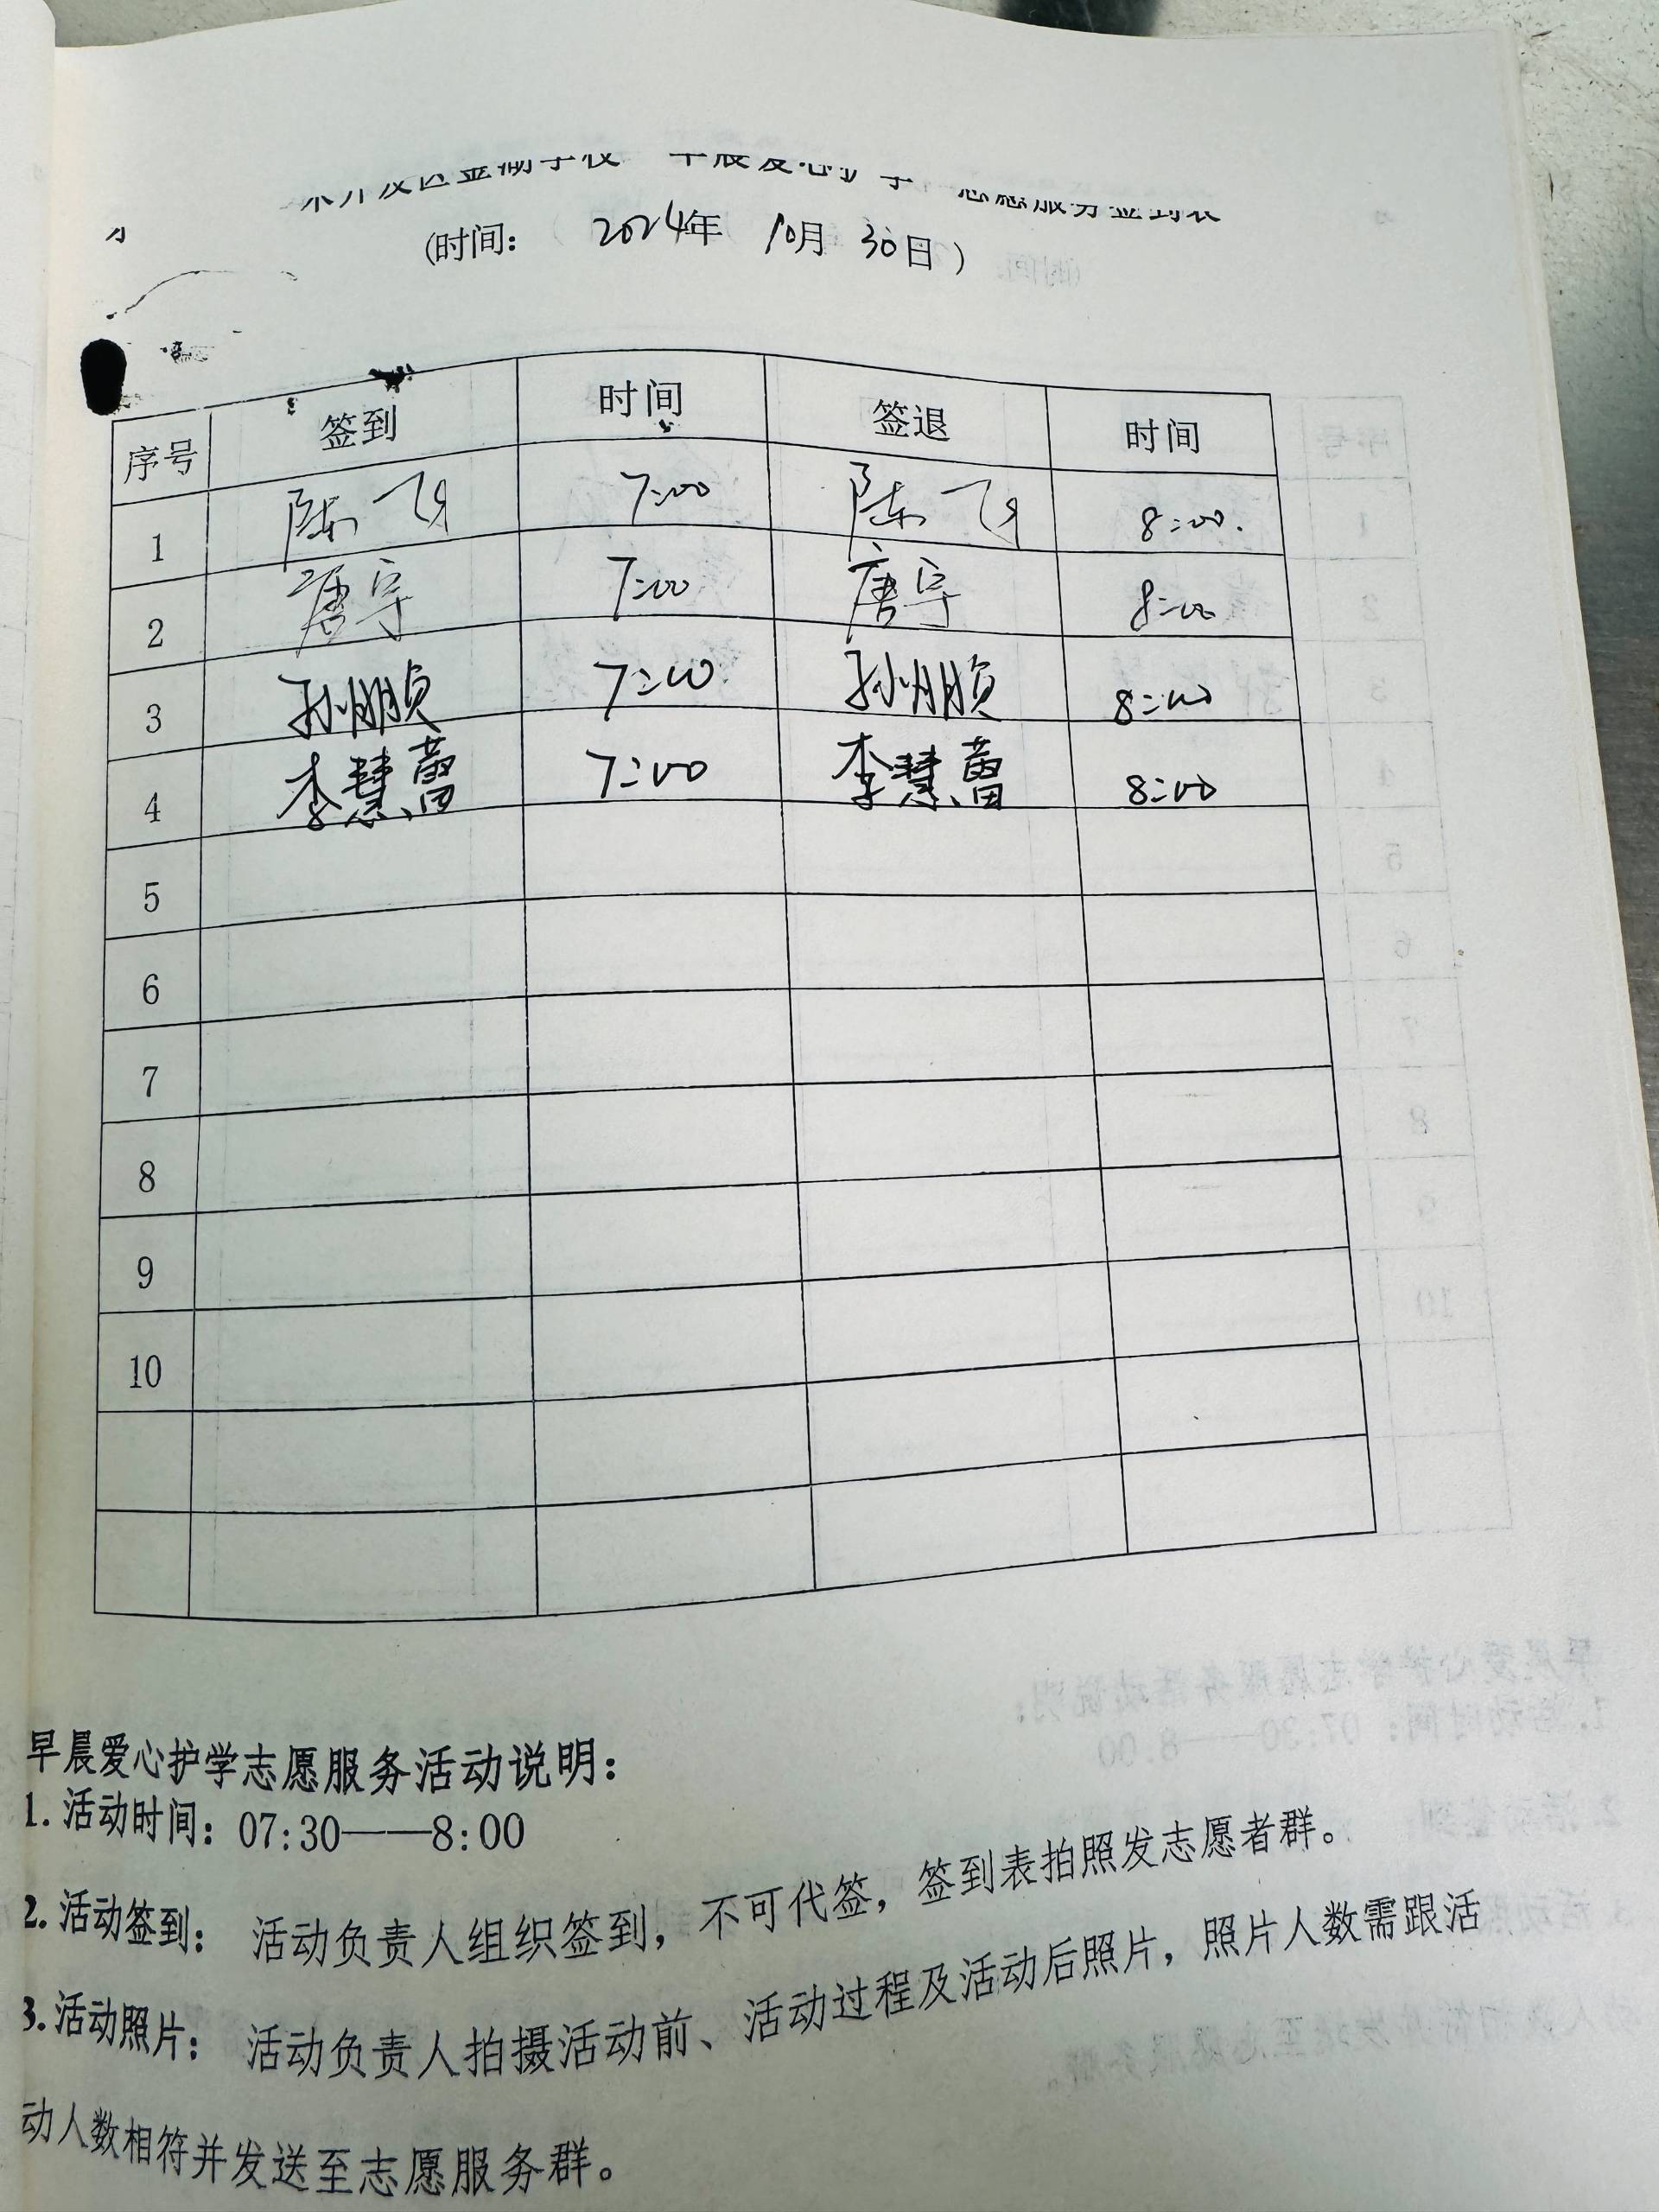 开发区金湖学校“早晨爱心护学”志愿服务签到表
(时间： 2024年 10月 30日)
序号 签到 时间 签退 时间
1 陈飞 7:00 陈飞 8:00.
2 唐宇 7:00 唐宇 8:00
3 孙鹏贞 7:00 孙鹏贞 8:00
4 李慧蕾 7:00 李慧蕾 8:00
5
6
7
8
9
10
早晨爱心护学志愿服务活动说明：
1. 活动时间：07:30——8:00
2. 活动签到： 活动负责人组织签到，不可代签，签到表拍照发志愿者群。
3. 活动照片： 活动负责人拍摄活动前、活动过程及活动后照片，照片人数需跟活
动人数相符并发送至志愿服务群。